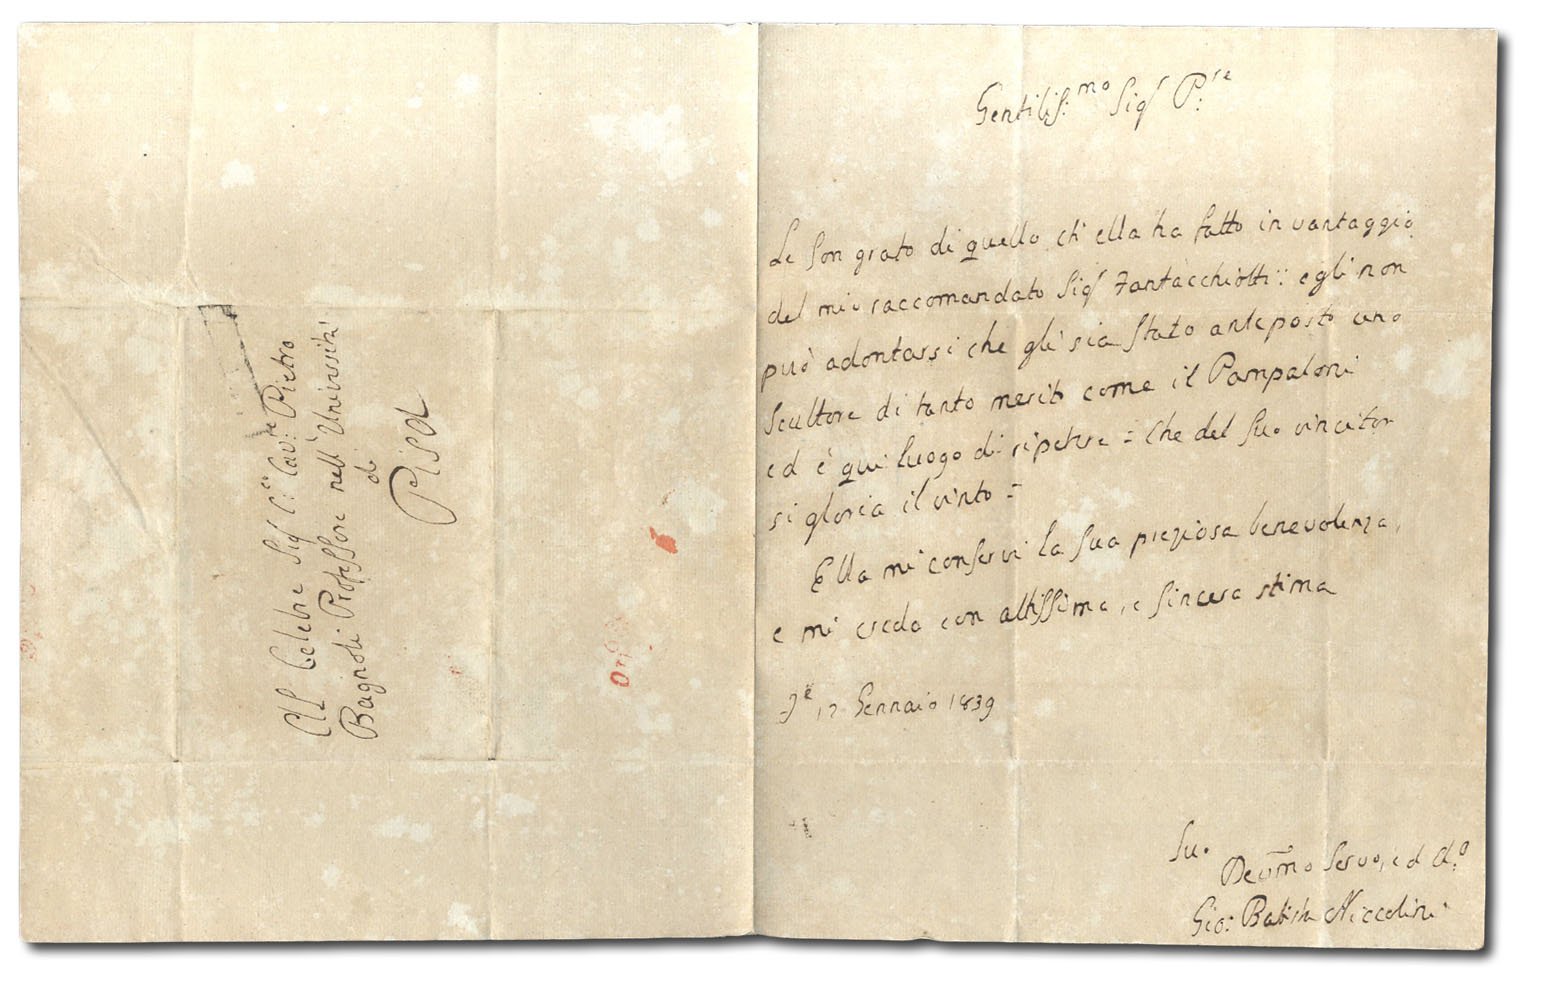 Gentiliss:mo Sigr P:re
Le son grato di quello ch'ella ha fatto in vantaggio
del mio raccomandato Sigr Fantacchiotti: egli non
può adontarsi che gli sia stato anteposto uno
Scultore di tanto merito come il Pampaloni
ed è qui luogo di ripetere = Che del suo vincitor
si gloria il vinto =
Ella mi conservi la sua preziosa benevolenza,
e mi creda con altissima, e sincera stima
Fe 12 Gennaio 1839
Suo
Devmo Servo, ed A:o
Gio: Batista Niccolini
All Celebre Sigr Cav:re Pietro
Bagnoli Professore nell'Università
di
Pisa